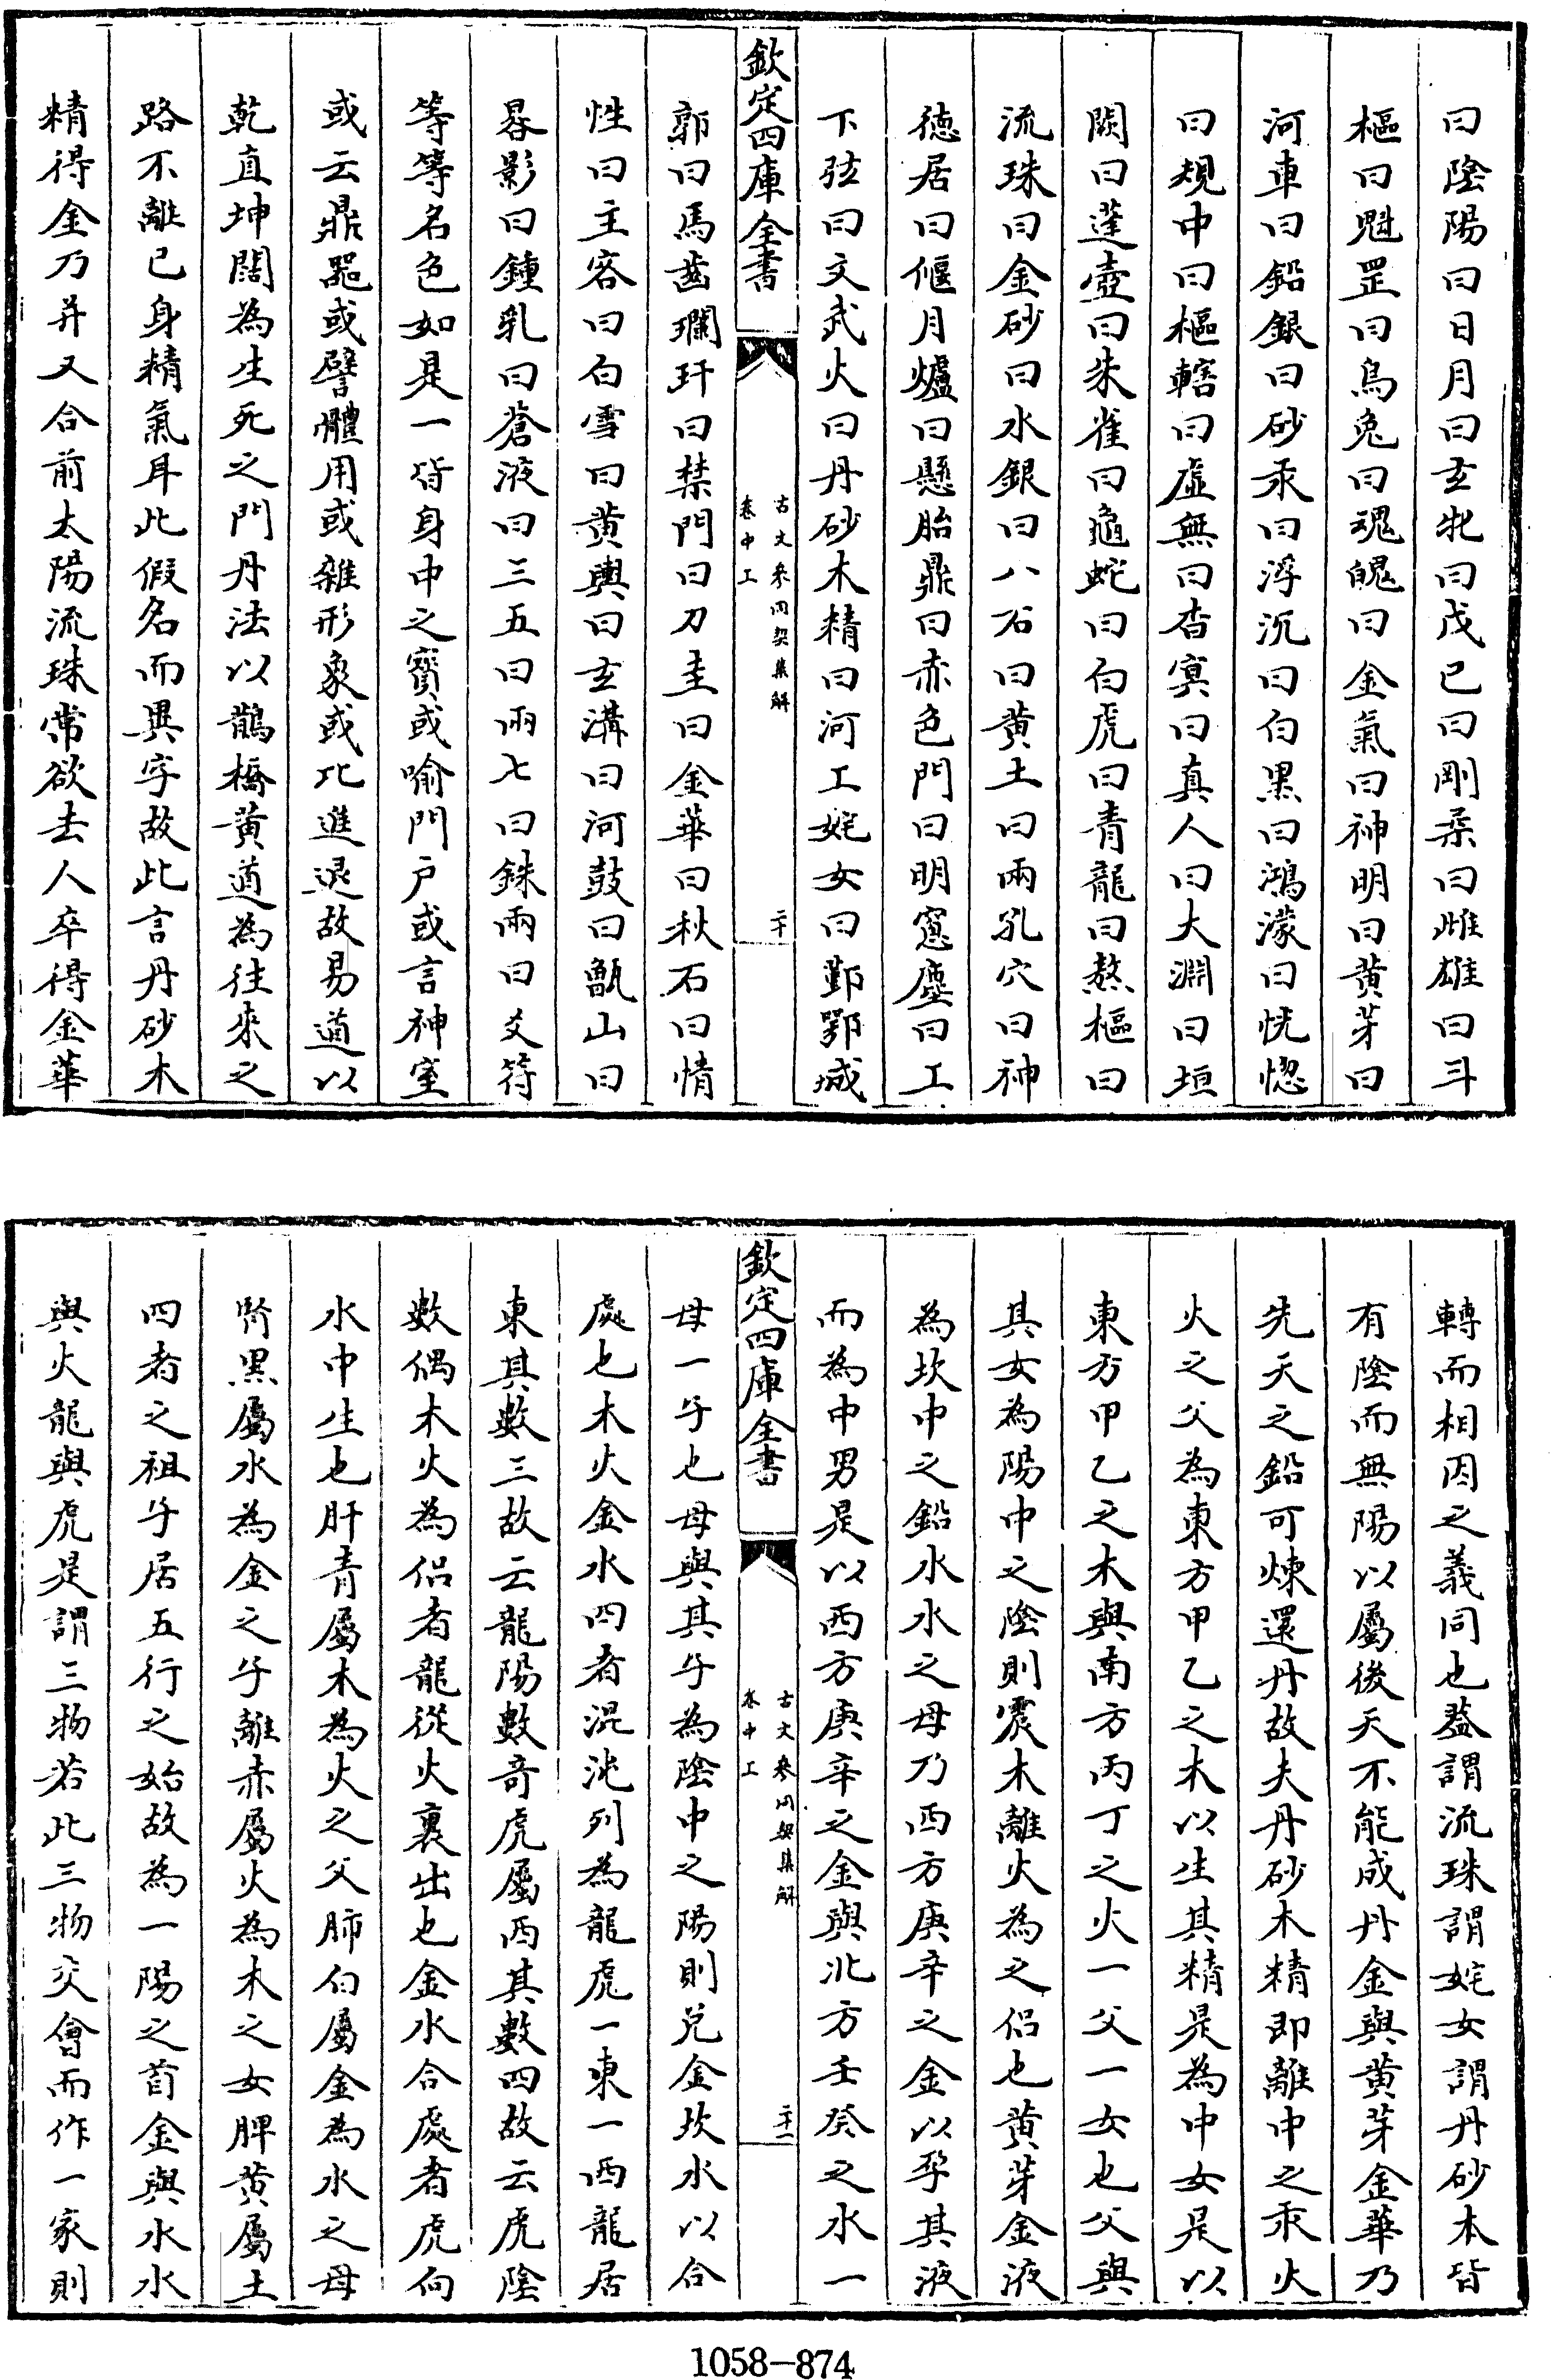 曰陰陽曰日月曰玄牝曰戊己曰剛柔曰雌雄曰斗
樞曰魁罡曰烏兔曰魂魄曰金氣曰神明曰黃芽曰
河車曰鉛銀曰砂汞曰浮沉曰白黑曰鴻濛曰恍惚
曰規中曰樞轄曰虛無曰杳冥曰真人曰大淵曰垣
闕曰蓬壺曰朱雀曰龜蛇曰白虎曰青龍曰熬樞曰
流珠曰金砂曰水銀曰八石曰黃土曰兩孔穴曰神
德居曰偃月爐曰懸胎鼎曰赤色門曰明窻塵曰工
下弦曰文武火曰丹砂木精曰河工姹女曰鄞鄂城
欽定四庫全書
古文參同契集解
卷中工
二十
郭曰馬齒瓓玕曰禁門曰刀圭曰金華曰秋石曰情
性曰主客曰白雪曰黃輿曰玄溝曰河鼓曰甑山曰
晷影曰鍾乳曰蒼液曰三五曰兩七曰銖兩曰爻符
等等名色如是一皆身中之寶或喻門戶或言神室
或云鼎器或譬體用或雜形象或比進退故易道以
乾直坤闢為生死之門丹法以鵲橋黃道為往來之
路不離己身精氣耳此假名而異字故此言丹砂木
精得金乃并又合前太陽流珠常欲去人卒得金華
轉而相因之義同也蓋謂流珠謂姹女謂丹砂本皆
有陰而無陽以屬後天不能成丹金與黃芽金華乃
先天之鉛可煉還丹故夫丹砂木精即離中之汞火
火之父為東方甲乙之木以生其精是為中女是以
東方甲乙之木與南方丙丁之火一父一女也父與
其女為陽中之陰則震木離火為之侶也黃芽金液
為坎中之鉛水水之母乃西方庚辛之金以孕其液
而為中男是以西方庚辛之金與北方壬癸之水一
欽定四庫全書
古文參同契集解
卷中工
二十一
母一子也母與其子為陰中之陽則兌金坎水以合
處也木火金水四者混沌列為龍虎一東一西龍居
東其數三故云龍陽數奇虎屬西其數四故云虎陰
數偶木火為侶者龍從火裏出也金水合處者虎向
水中生也肝青屬木為火之父肺白屬金為水之母
腎黑屬水為金之子離赤屬火為木之女脾黃屬土
四者之祖子居五行之始故為一陽之首金與水水
與火龍與虎是謂三物若此三物交會而作一家則
1058-874